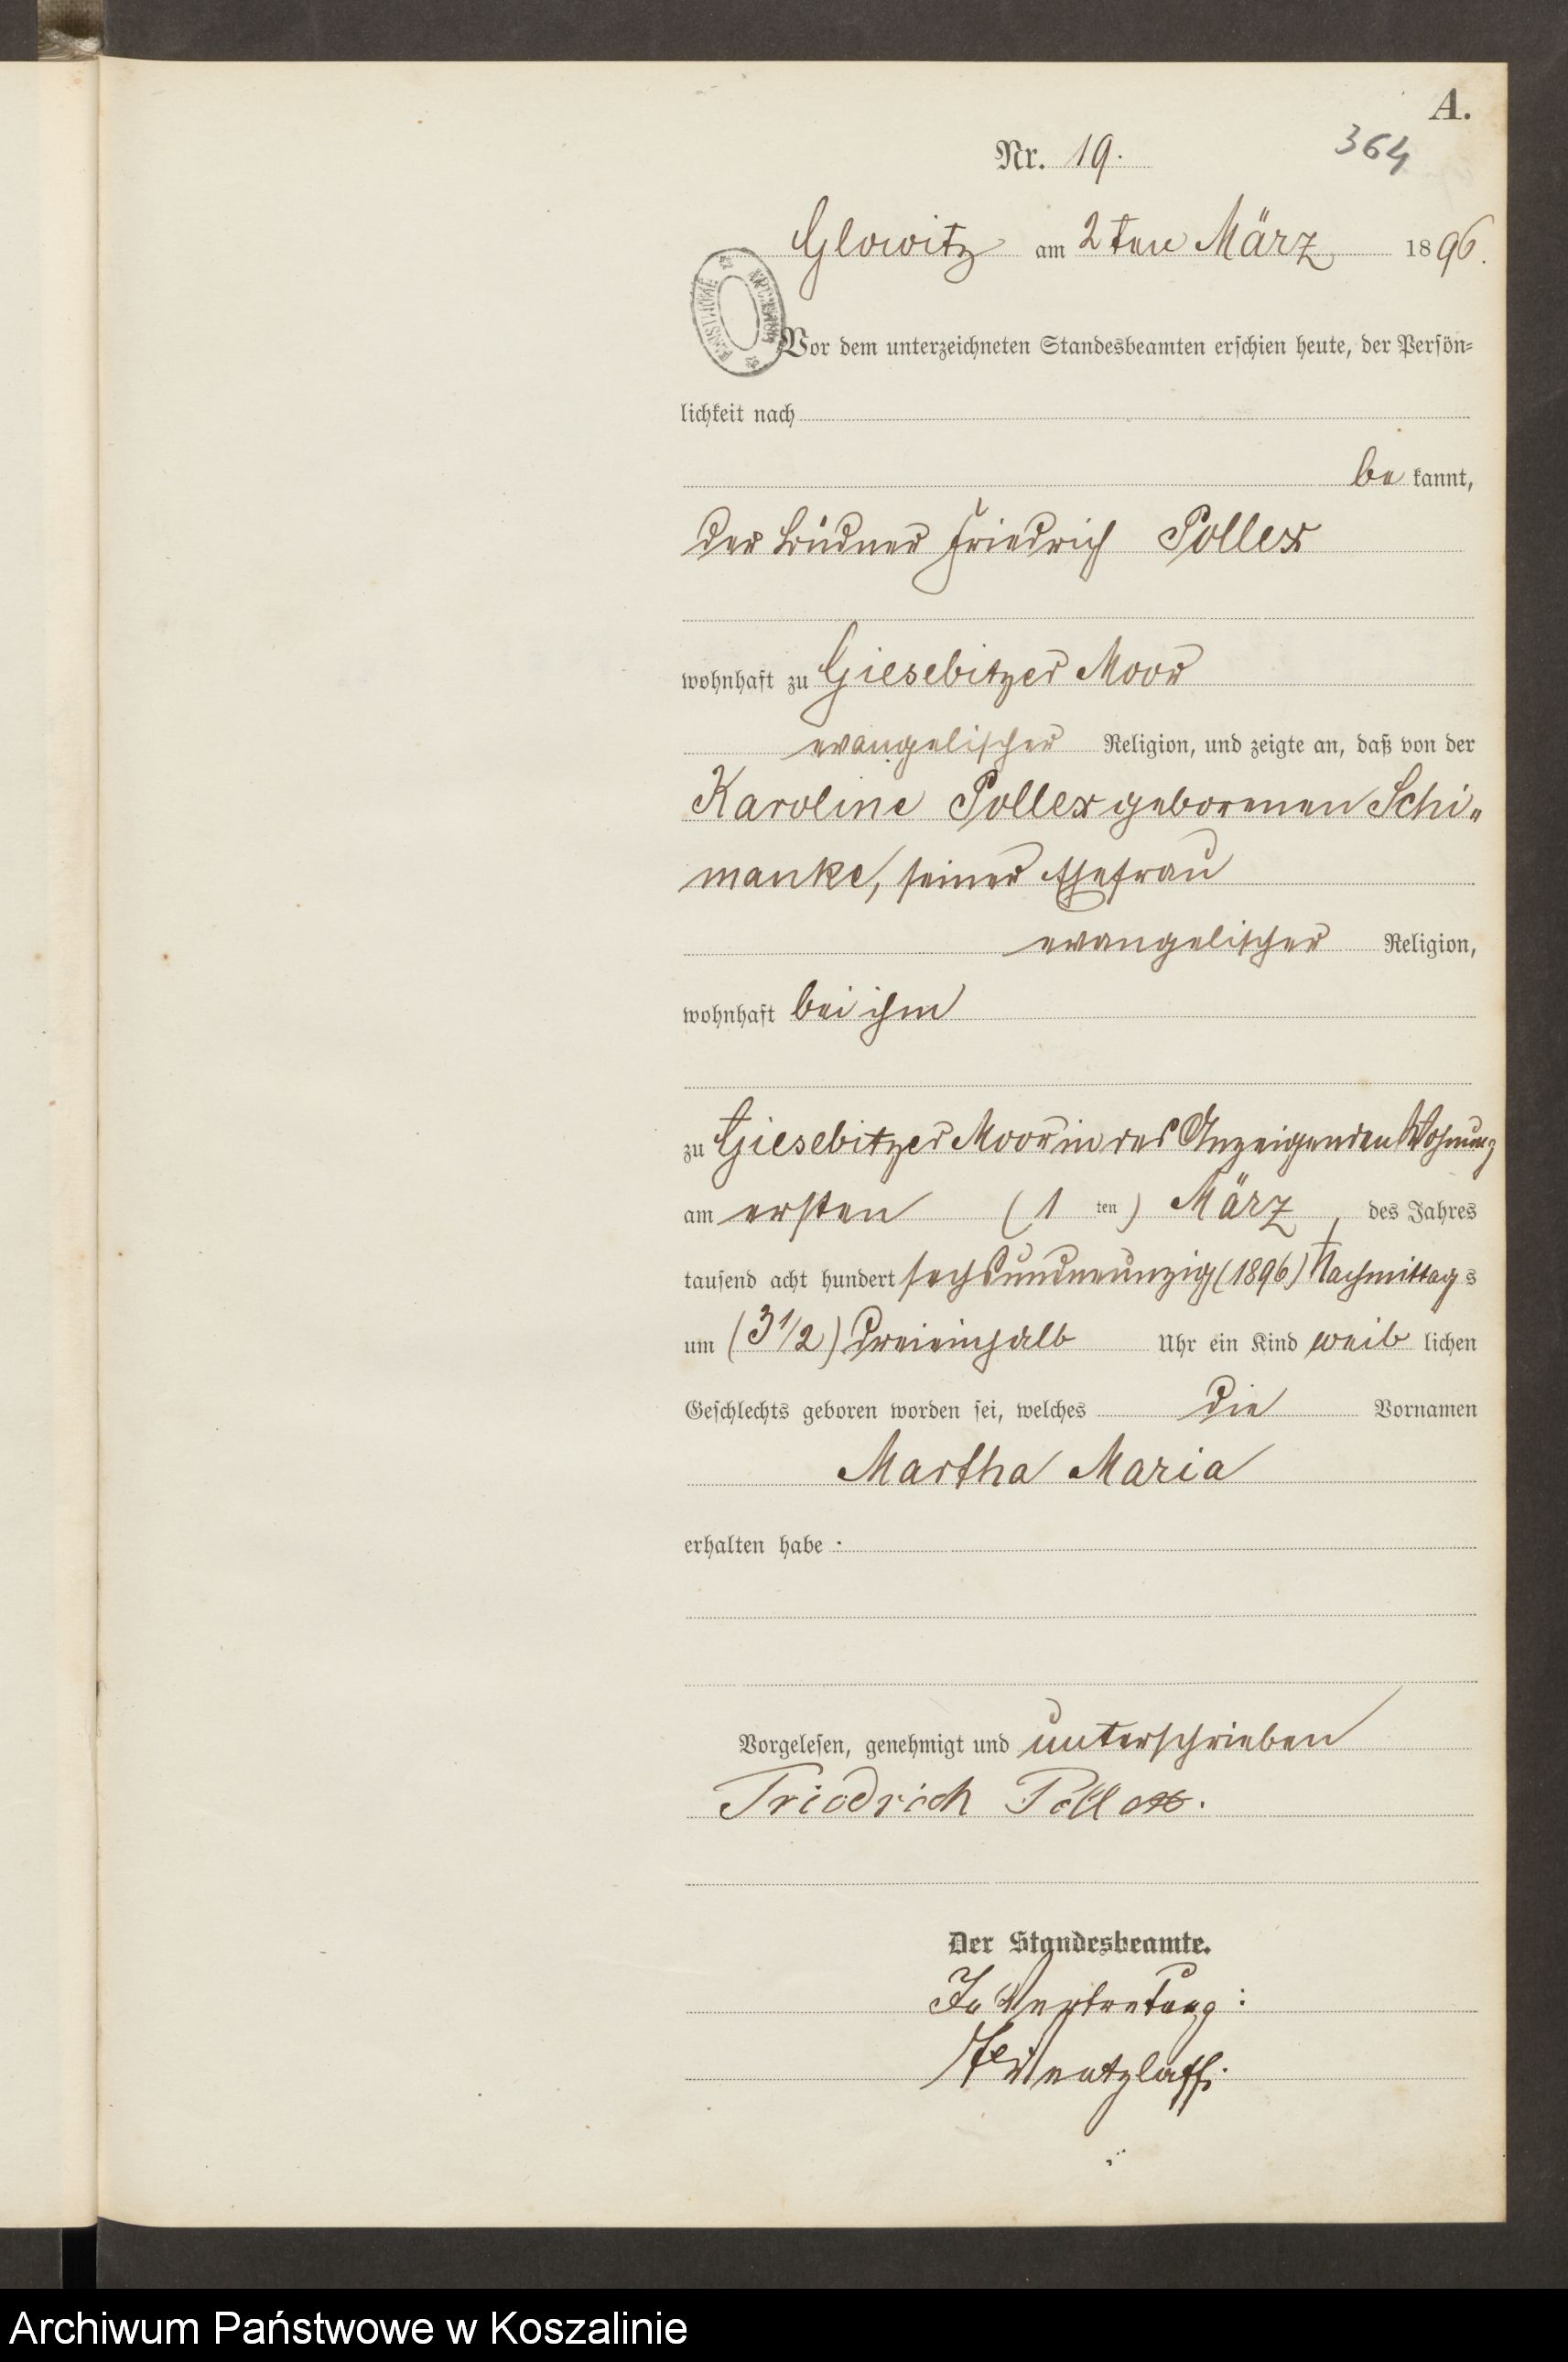 A.
Nr. 19.
364
Glowitz am 2ten März 1896.
Vor dem unterzeichneten Standesbeamten erschien heute, der Persön=
lichkeit nach
be kannt,
der Büdner Friedrich Pollex
wohnhaft zu Giesebitzer Moor
evangelischer Religion, und zeigte an, daß von der
Karoline Pollex geborenen Schi=
manke, seiner Ehefrau
evangelischer Religion,
wohnhaft bei ihm
zu Giesebitzer Moor in des Anzeigenden Wohnung
am ersten (1 ten) März, des Jahres
tausend acht hundert sechsundneunzig (1896) Nachmittag s
um (3 1/2) dreieinhalb Uhr ein Kind weib lichen
Geschlechts geboren worden sei, welches die Vornamen
Martha Maria
erhalten habe .
Vorgelesen, genehmigt und unterschrieben
Friedrich Pollex.
Der Standesbeamte.
In Vertretung:
Wentzlaff.
Archiwum Państwowe w Koszalinie